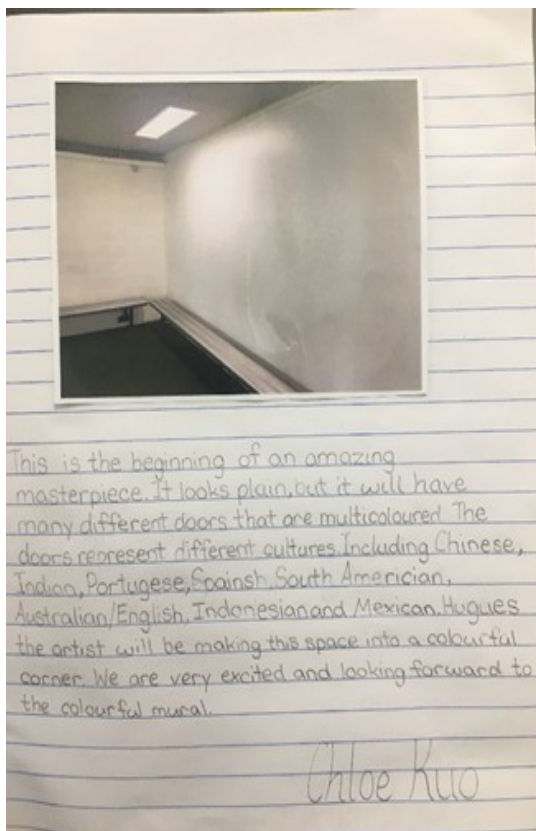 This is the beginning of an amazing
masterpiece. It looks plain, but it will have
many different doors that are multicoloured. The
doors represent different cultures. Including Chinese,
Indian, Portugese, Spainsh, South Americian,
Australian/English, Indonesian and Mexican. Hugues
the artist will be making this space into a colourful
corner. We are very excited and looking forward to
the colourful mural.
Chloe Kuo